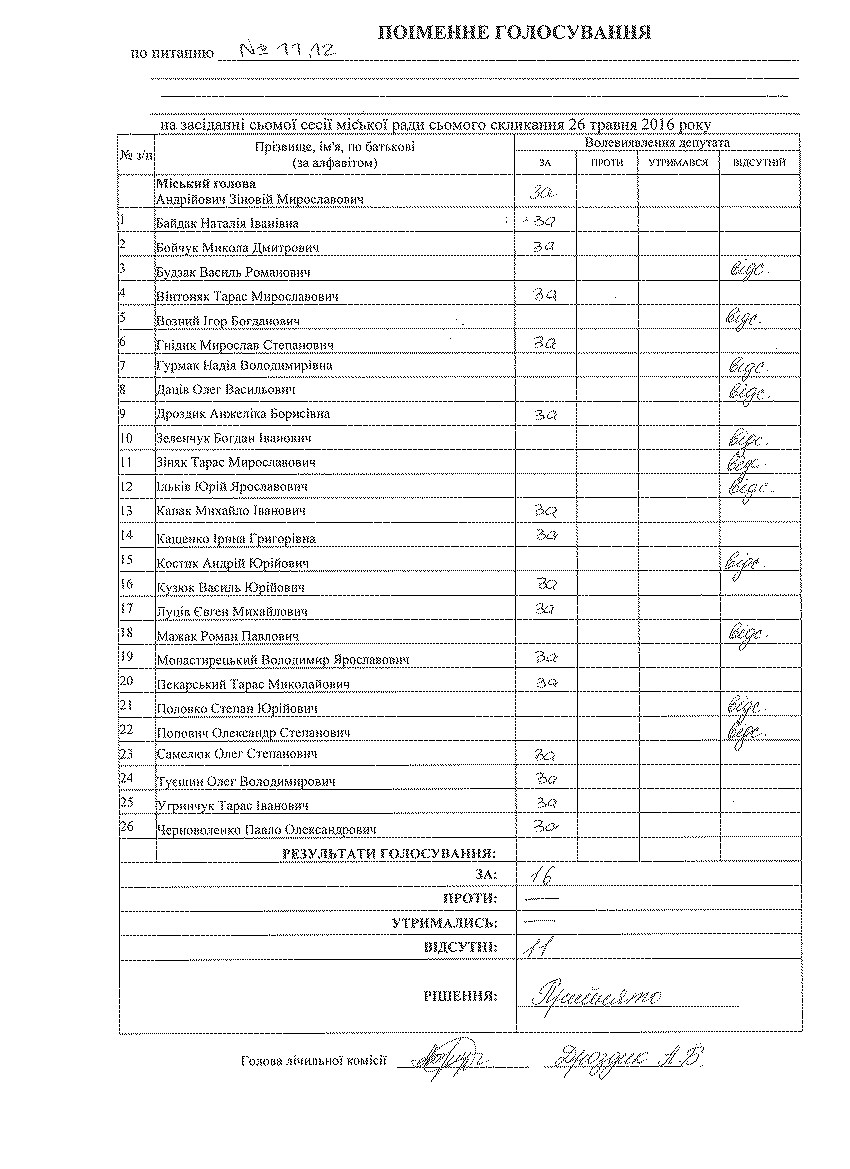 ПОІМЕННЕ ГОЛОСУВАННЯ
по питанню № 11,12
на засіданні сьомої сесії міської ради сьомого скликання 26 травня 2016 року
№ з/п Прізвище, ім'я, по батькові (за алфавітом) Волевиявлення депутата
ЗА ПРОТИ УТРИМАВСЯ ВІДСУТНІЙ
Міський голова
Андрійович Зіновій Мирославович за
1 Байдак Наталія Іванівна за
2 Бойчук Микола Дмитрович за
3 Будзак Василь Романович відс.
4 Вінтоняк Тарас Мирославович за
5 Возний Ігор Богданович відс.
6 Гнідик Мирослав Степанович за
7 Гурмак Надія Володимирівна відс.
8 Даців Олег Васильович відс.
9 Дроздик Анжеліка Борисівна за
10 Зеленчук Богдан Іванович відс.
11 Зіняк Тарас Мирославович відс.
12 Ільків Юрій Ярославович відс.
13 Капак Михайло Іванович за
14 Кащенко Ірина Григорівна за
15 Костик Андрій Юрійович відс.
16 Кузюк Василь Юрійович за
17 Луців Євген Михайлович за
18 Мажак Роман Павлович відс.
19 Монастирецький Володимир Ярославович за
20 Пекарський Тарас Миколайович за
21 Половко Степан Юрійович відс.
22 Попович Олександр Степанович відс.
23 Самелюк Олег Степанович за
24 Туєшин Олег Володимирович за
25 Угринчук Тарас Іванович за
26 Черноволенко Павло Олександрович за
РЕЗУЛЬТАТИ ГОЛОСУВАННЯ:
ЗА: 16
ПРОТИ: —
УТРИМАЛИСЬ: —
ВІДСУТНІ: 11
РІШЕННЯ: Прийнято
Голова лічильної комісії Дроздик А В